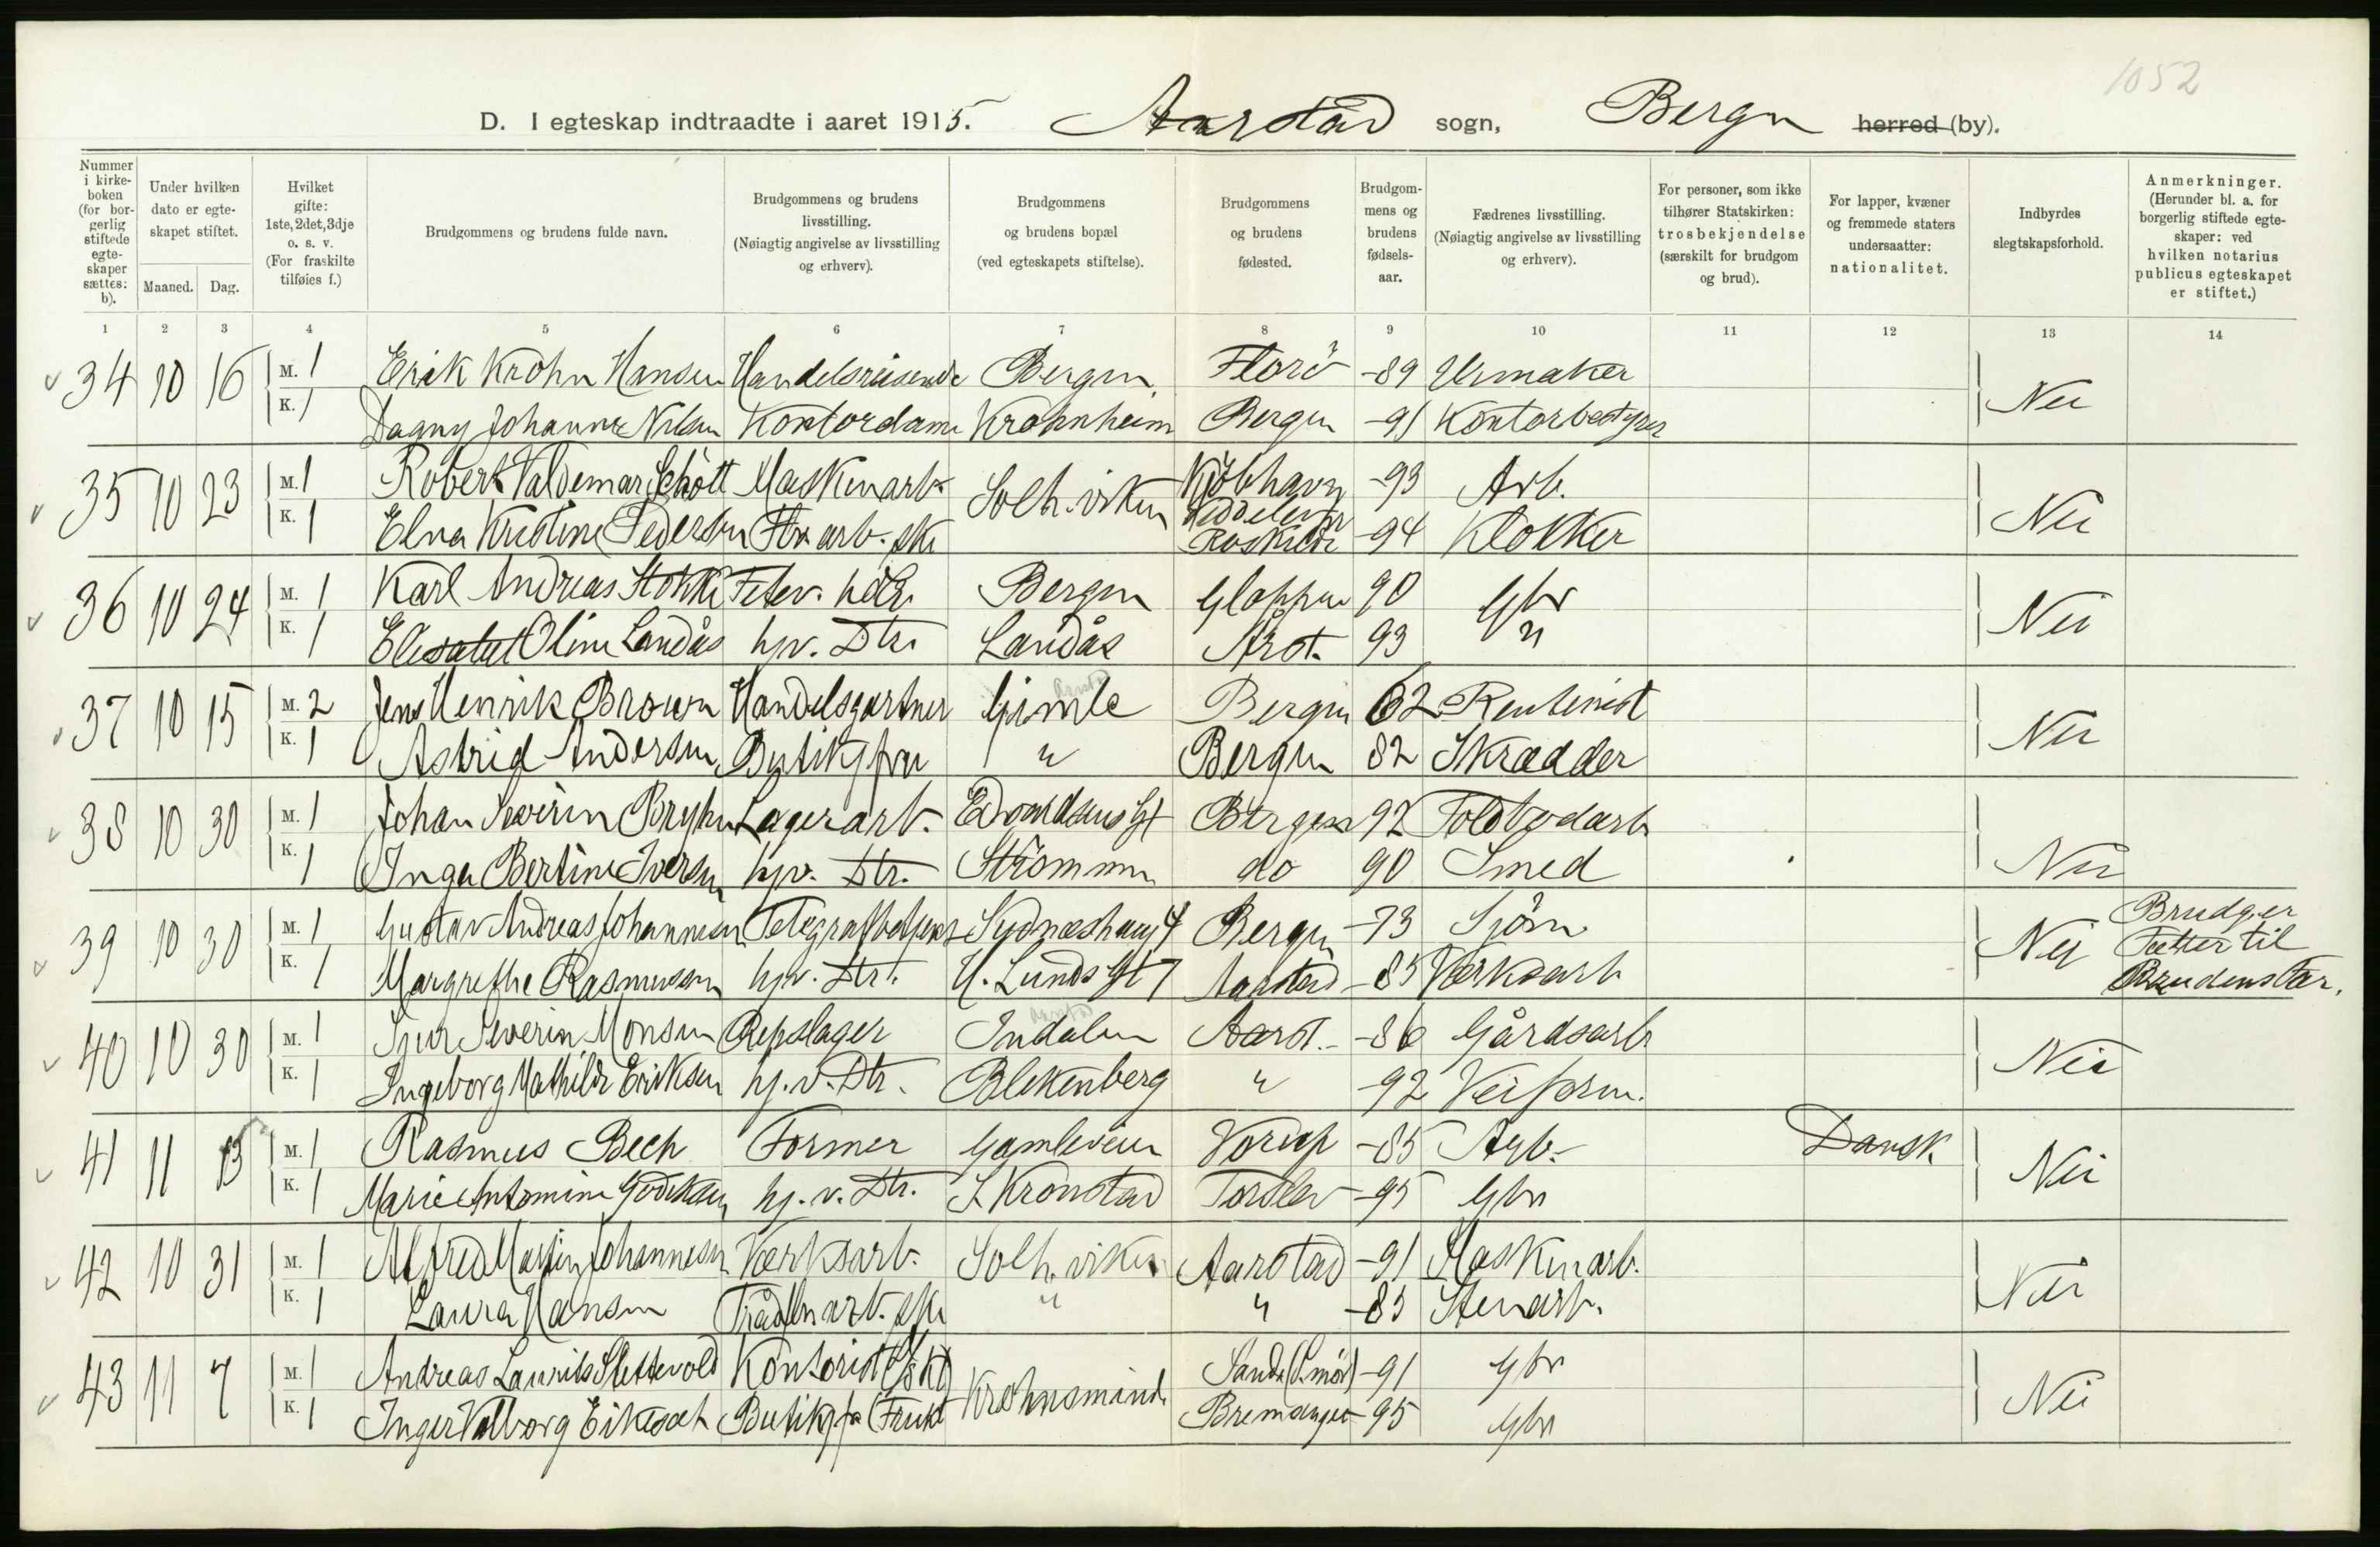 1052
D. I egteskap indtraadte i aaret 1915. Aarstad sogn, Bergn herred (by).
Nummer i kirke-boken (for bor-gerlig stiftede egte-skaper sættes: b).
Under hvilken dato er egte-skapet stiftet.
Maaned. Dag.
Hvilket gifte: 1ste, 2det, 3dje o. s. v. (For fraskilte tilføies f.)
Brudgommens og brudens fulde navn.
Brudgommens og brudens livsstilling. (Nøiagtig angivelse av livsstilling og erhverv).
Brudgommens og brudens bopæl (ved egteskapets stiftelse).
Brudgommens og brudens fødested.
Brudgom-mens og brudens fødsels-aar.
Fædrenes livsstilling. (Nøiagtig angivelse av livsstilling og erhverv).
For personer, som ikke tilhører Statskirken: trosbekjendelse (særskilt for brudgom og brud).
For lapper, kvæner og fremmede staters undersaatter: nationalitet.
Indbyrdes slegtskapsforhold.
Anmerkninger. (Herunder bl. a. for borgerlig stiftede egte-skaper: ved hvilken notarius publicus egteskapet er stiftet.)
1 2 3 4 5 6 7 8 9 10 11 12 13 14
34 10 16 M. 1 Erik Krohn Hansen Handelsreisende Bergen Florö -89 Urmaker Nei
K. 1 Dagny Johanne Nilsen Kontordame Krohnheim Bergen -91 Kontorbestyrer
35 10 23 M. 1 Robert Valdemar Schött Maskinarb. Solh.viken Kjöbhavn -93 Arb. Nei
K. 1 Elna Kristine Pedersen arb.ske Roskilde -94 Klokker
36 10 24 M. 1 Karl Andreas Stokke Bergen Gloppen 90 Gbr Nei
K. 1 Elisabet Oline Landås hjv. Dtr. Landås Arst. 93 "
37 10 15 M. 2 Jens Henrik Brown Handelsgartner Gimle Bergen 62 Rentenist Nei
K. 1 Astrid Andersen Butikfrøk " Bergen 82 Skrædder
38 10 30 M. 1 Johan Severin Bryhn Lagerarb. Edvardsens gt Bergen 92 Toldbodarb Nei
K. 1 Inga Bertine Iversen hjv. Dtr. Strömmen do 90 Smed
39 10 30 M. 1 Gustav Andreas Johannesen Telegrafbetjent Sydneshaug 4 Bergen -73 Sjöm Nei Brudg. er
Fætter til
K. 1 Margrethe Rasmussen hjv. Dtr. H. Lunds gt 7 Aarstad -85 Værksarb Brudens Far.
40 10 30 M. 1 Sjur Severin Monsen Repslager Indalen Aarst. -86 Gårdsarb Nei
K. 1 Ingeborg Mathilde Eriksen hj.v. Dtr. Blekenberg " -92 Veiform.
41 11 13 M. 1 Rasmus Bech Former Gamleveien Vorup -85 Arb. Dansk Nei
K. 1 Marie Antomine Godiksen hj.v. Dtr. S. Kronstad Torslev -95 Gbr
42 10 31 M. 1 Alfred Martin Johannesen Værksarb. Solh.viken Aarstad -91 Maskinarb. Nei
K. 1 Laura Hansen arb.ske " " -85 Stenarb.
43 11 7 M. 1 Andreas Laurits Slettevold Kontorist Krohnsminde Sande (S.mör) -91 Gbr Nei
K. 1 Inger Valborg Eikeset Butikfr (Frukt Bremanger -95 Gbr